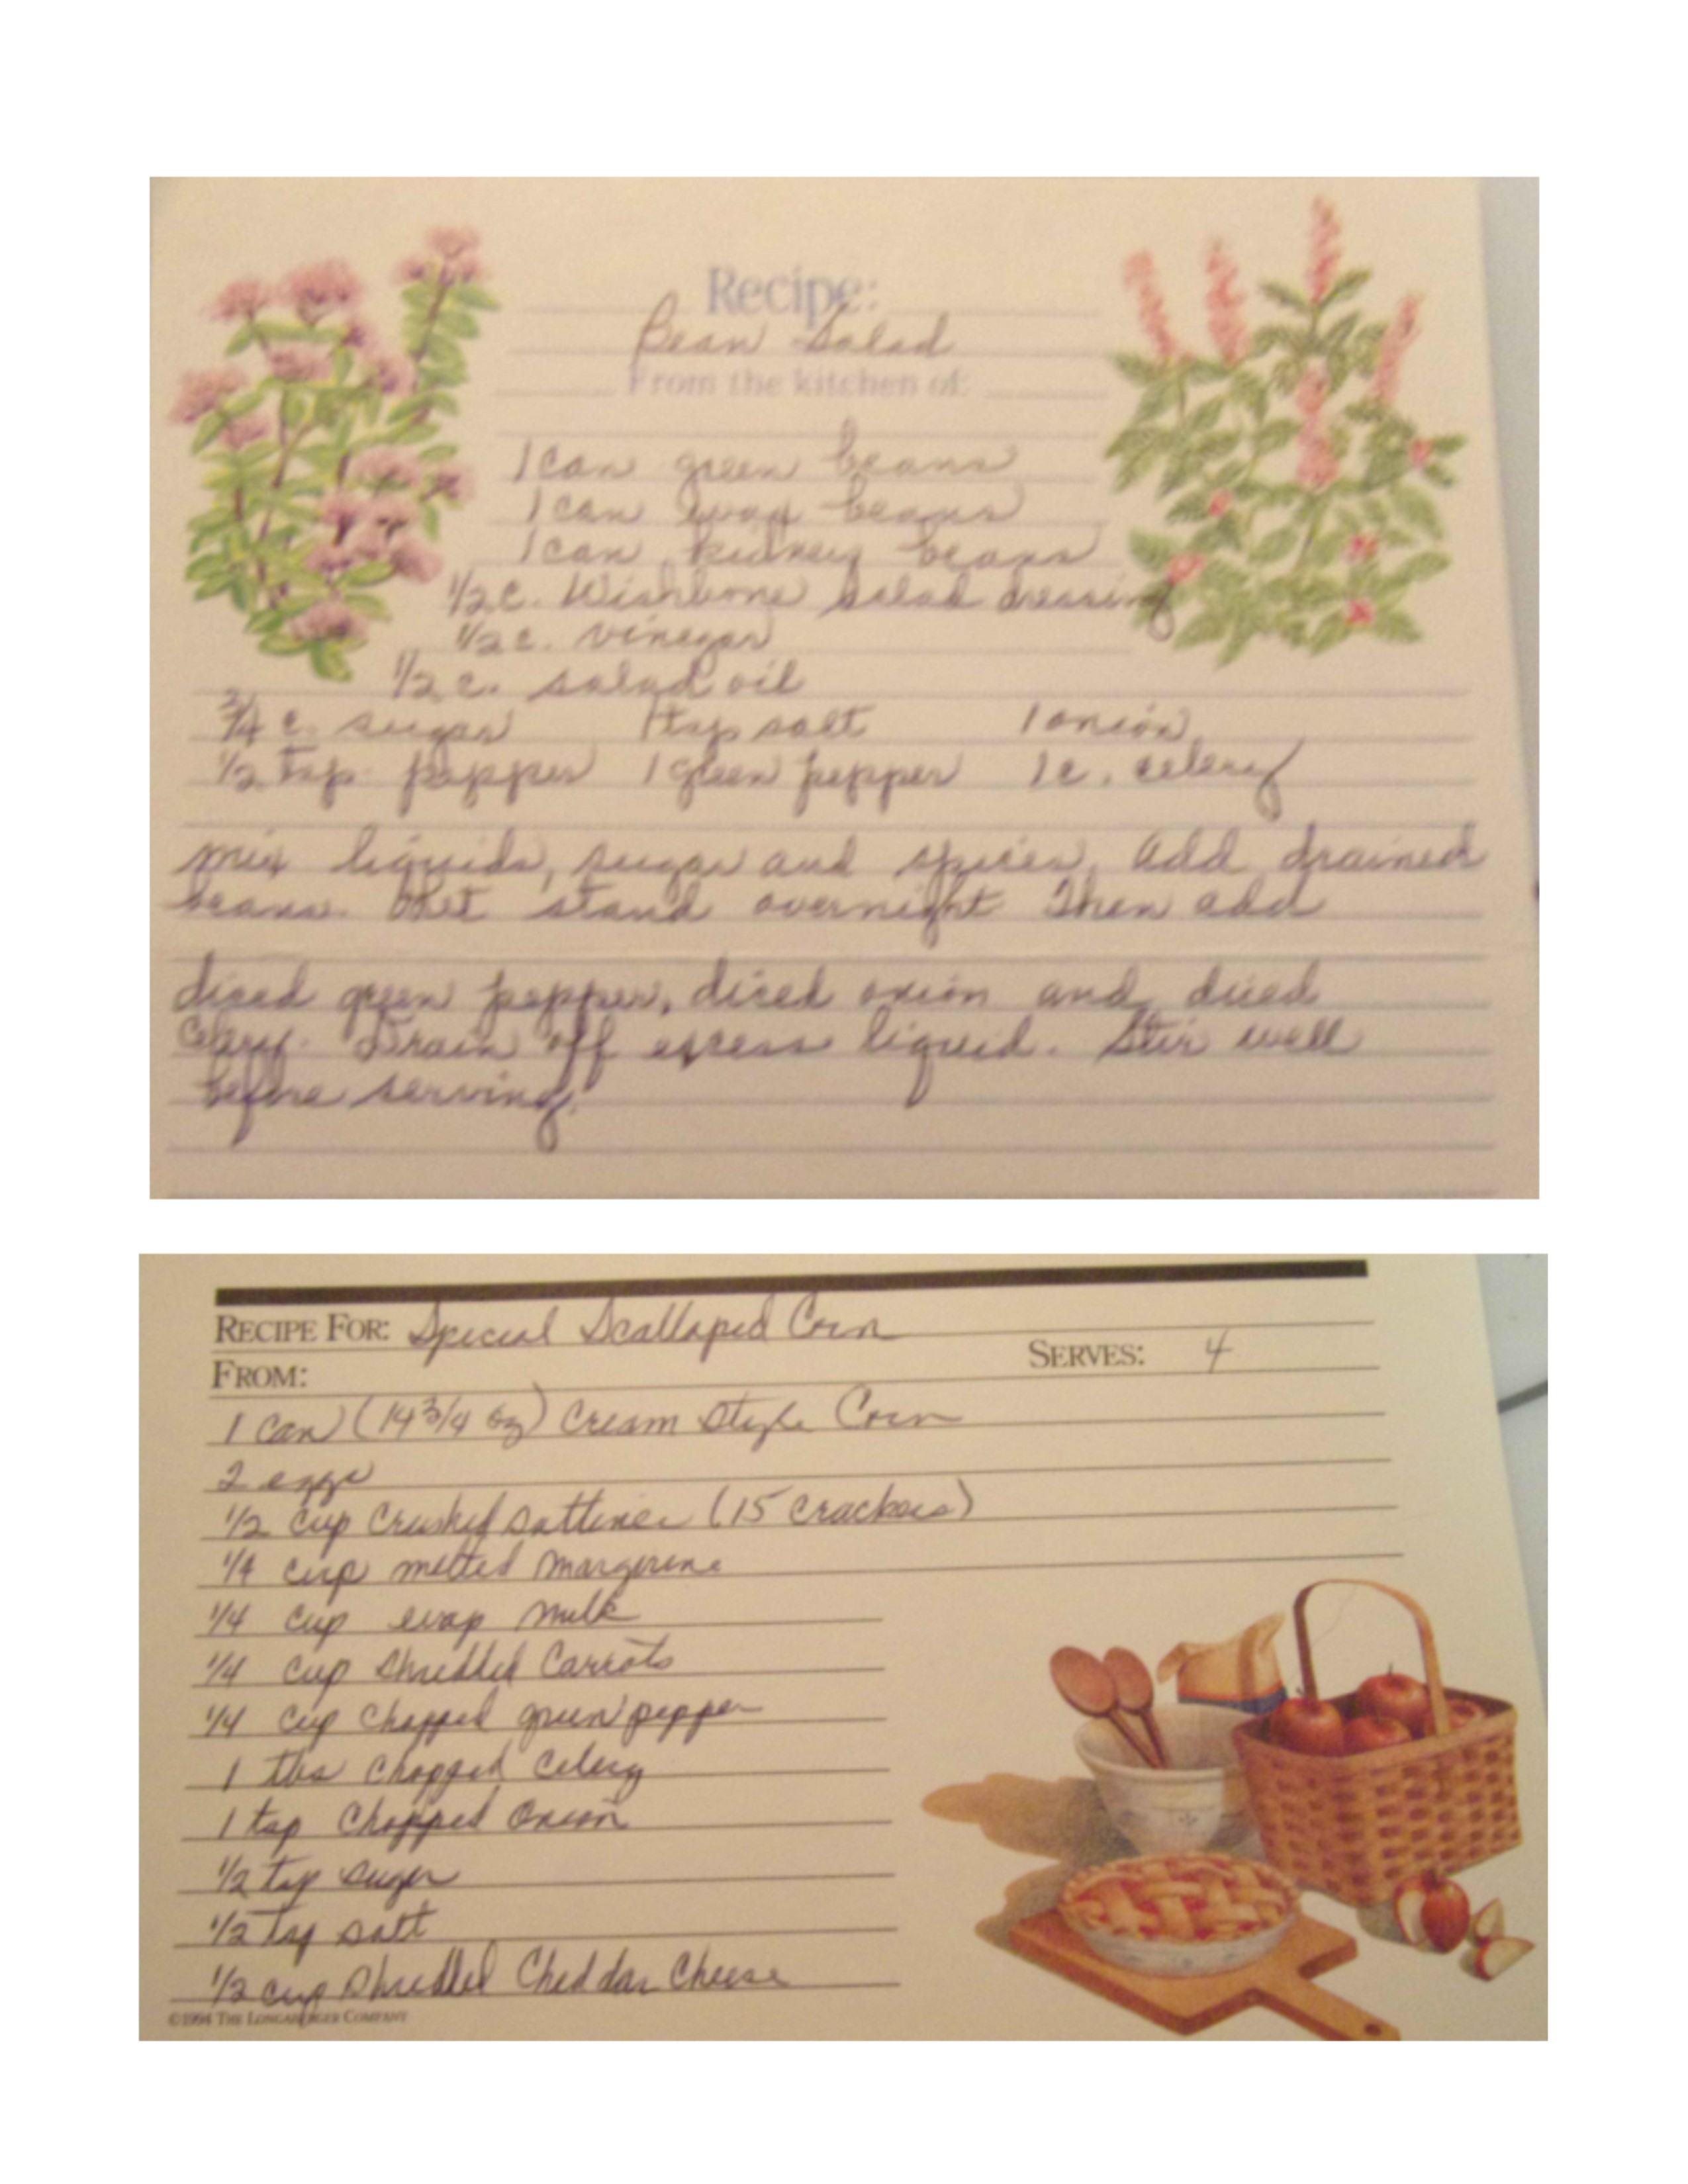 Recipe:
Bean Salad
From the kitchen of:
1 can green beans
1 can wax beans
1 can kidney beans
1/2 c. Wishbone salad dressing
1/2 c. vinegar
1/2 c. salad oil
3/4 c. sugar 1 tsp salt 1 onion
1/2 tsp pepper 1 green pepper 1 c. celery
mix liquids, sugar and spices. Add drained
beans. Let stand overnight Then add
diced green pepper, diced onion and diced
celery. Drain off excess liquid. Stir well
before serving.
RECIPE FOR: Special Scalloped Corn
FROM: SERVES: 4
1 can (14 3/4 oz) Cream Style Corn
2 eggs
1/2 cup crushed saltines (15 crackers)
1/4 cup melted margerine
1/4 cup evap milk
1/4 cup shredded carrots
1/4 cup chopped green pepper
1 tbs chopped celery
1 tsp chopped onion
1/2 tsp sugar
1/2 tsp salt
1/2 cup shredded Cheddar Cheese
©1994 THE LONGABERGER COMPANY